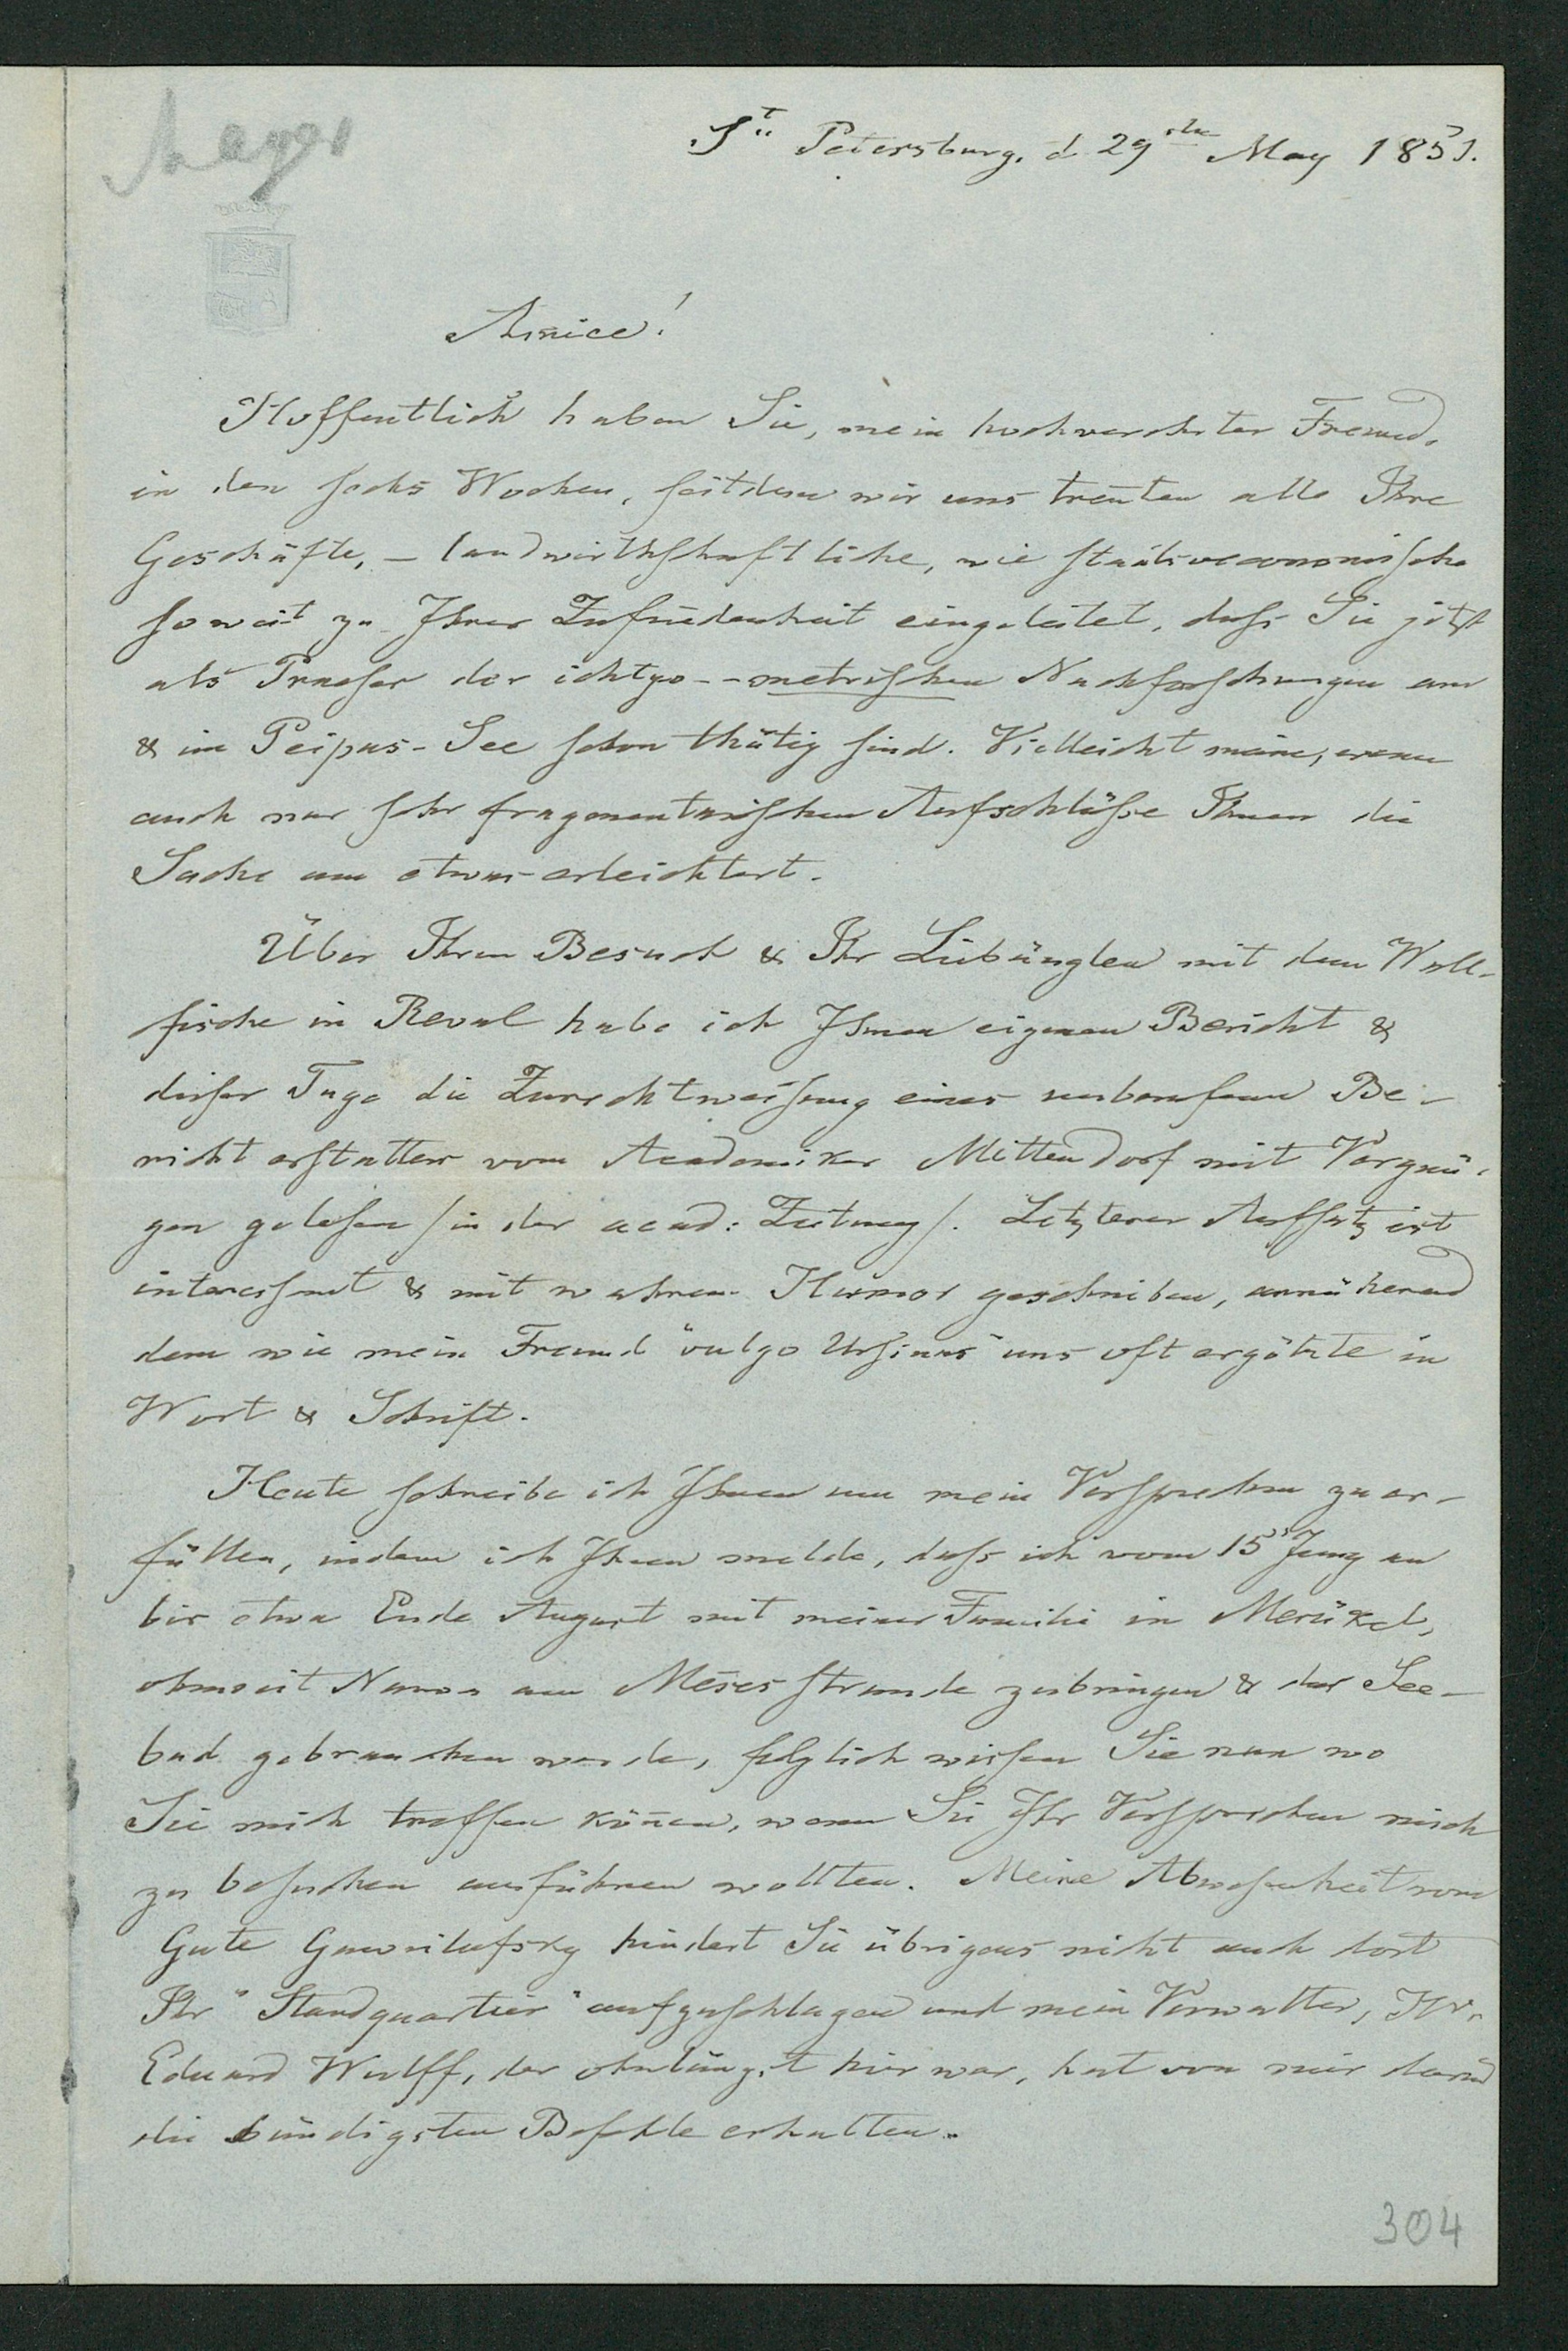 St. Petersburg, d 29sten May 1851.
Amice!
Hoffentlich haben Sie, mein hochverehrter Freund,
in den sechs Wochen, seitdem wir uns tren̄ten alle Ihre
Geschäfte, – landwirthschaftliche, wie staatsoeconomische
so weit zu Ihrer Zufriedenheit eingeleitet, dass Sie jetzt
als Praeses der ichtyo--metrischen Nachforschungen am
& im Peipus-See schon thätig sind. Vielleicht meine, wenn
auch nur sehr fragmentarischen Aufschlüsse Ihnen die
Sache um etwas erleichtert.
Über Ihren Besuch & Ihr Liebäuglen mit dem Wall-
fische in Reval habe ich Ihren eigenen Bericht &
dieser Tage die Zurechtweisung eines unberufenen Be-
richterstatters vom Academiker Mittendorf mit Vergnü-
gen gelesen /in der acad: Zeitung/. Letzterer Aufsatz ist
interessant & mit wahrem Humor geschrieben, annähernd
dem wie mein Freund "vulgo Ursinus" uns oft ergötzte in
Wort & Schrift.
Heute schreibe ich Ihnen um mein Versprechen zu er-
füllen, indem ich Ihnen melde, dass ich vom 15 Juny an
bis etwa Ende August mit meiner Familie in Merükel,
ohnweit Narva am Meeresstrande zubringen & das See-
bad gebrauchen werde, folglich wissen Sie nun wo
Sie mich treffen kön̄en, wenn Sie Ihr Versprechen mich
zu besuchen ausführen wollten. Meine Abwesenheit vom
Gute Gawrilofsky hindert Sie übrigens nicht auch dort
Ihr "Standquartier" aufzuschlagen und mein Verwalter, Hr.
Eduard Wulff, der ohnlängst hier war, hat von mir
die bündigsten Befehle erhalten.
304